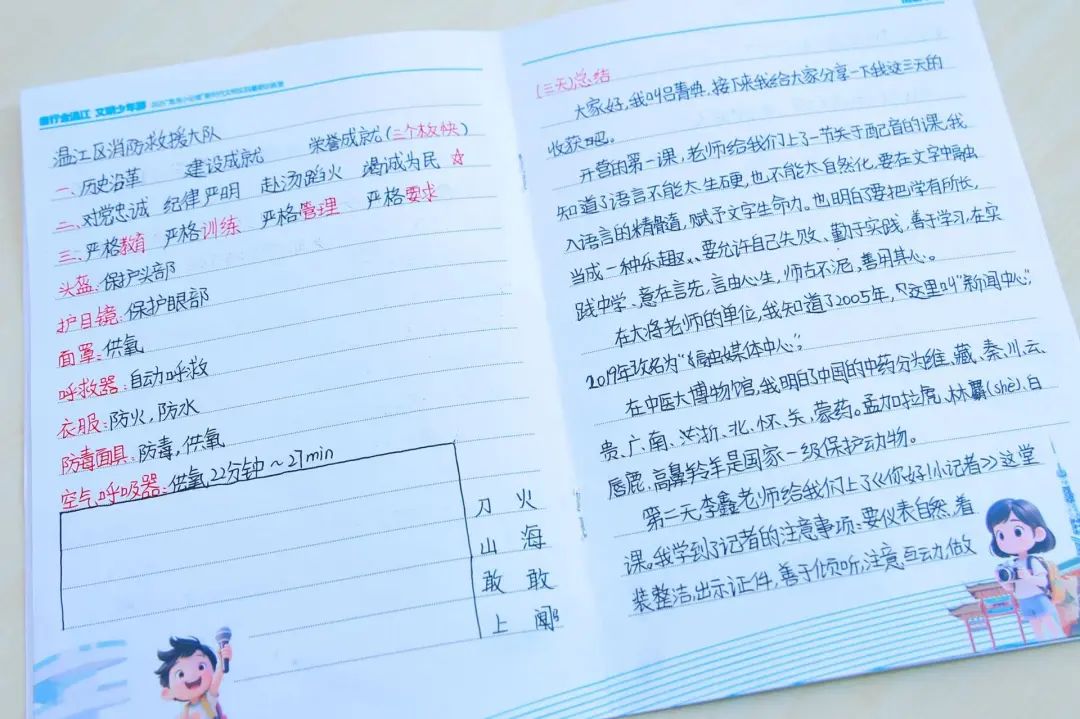 德行金温江 文明少年郎
温江区消防救援大队
一、历史沿革 建设成就 荣誉成就(三个板快)
二、对党忠诚 纪律严明 赴汤蹈火 竭诚为民 ☆
三、严格教育 严格训练 严格管理 严格要求
头盔:保护头部
护目镜:保护眼部
面罩:供氧
呼救器:自动呼救
衣服:防火,防水
防毒面具:防毒,供氧
空气呼吸器:供氧,22分钟~27min
刀 火
山 海
敢 敢
上 闯
(三天)总结
大家好,我叫吕菁典,接下来我给大家分享一下我这三天的
收获吧。
开营的第一课,老师给我们上了一节关于配音的课,我
知道了语言不能太生硬,也不能太自然化,要在文字中融
入语言的精髓,赋予文字生命力。也明白了要把学有所长,
当成一种乐趣、要允许自己失败、勤于实践,善于学习,在实
践中学、意在言先,言由心生,师古不泥,善用其心。
在大将老师的单位,我知道了2005年,“这里叫“新闻中心”,
2019年改名为“融媒体中心”;
在中医大博物馆,我明白了中国的中药分为维、藏、秦、川、云、
贵、广、南、浙、北、怀、关、蒙药。孟加拉虎、林麝(shè)、白
唇鹿、高鼻羚羊是国家一级保护动物。
第二天,李鑫老师给我们上了《你好!小记者》这堂
课。我学到了记者的注意事项:要仪表自然,着
装整洁,出示证件,善于倾听,注意互动,做